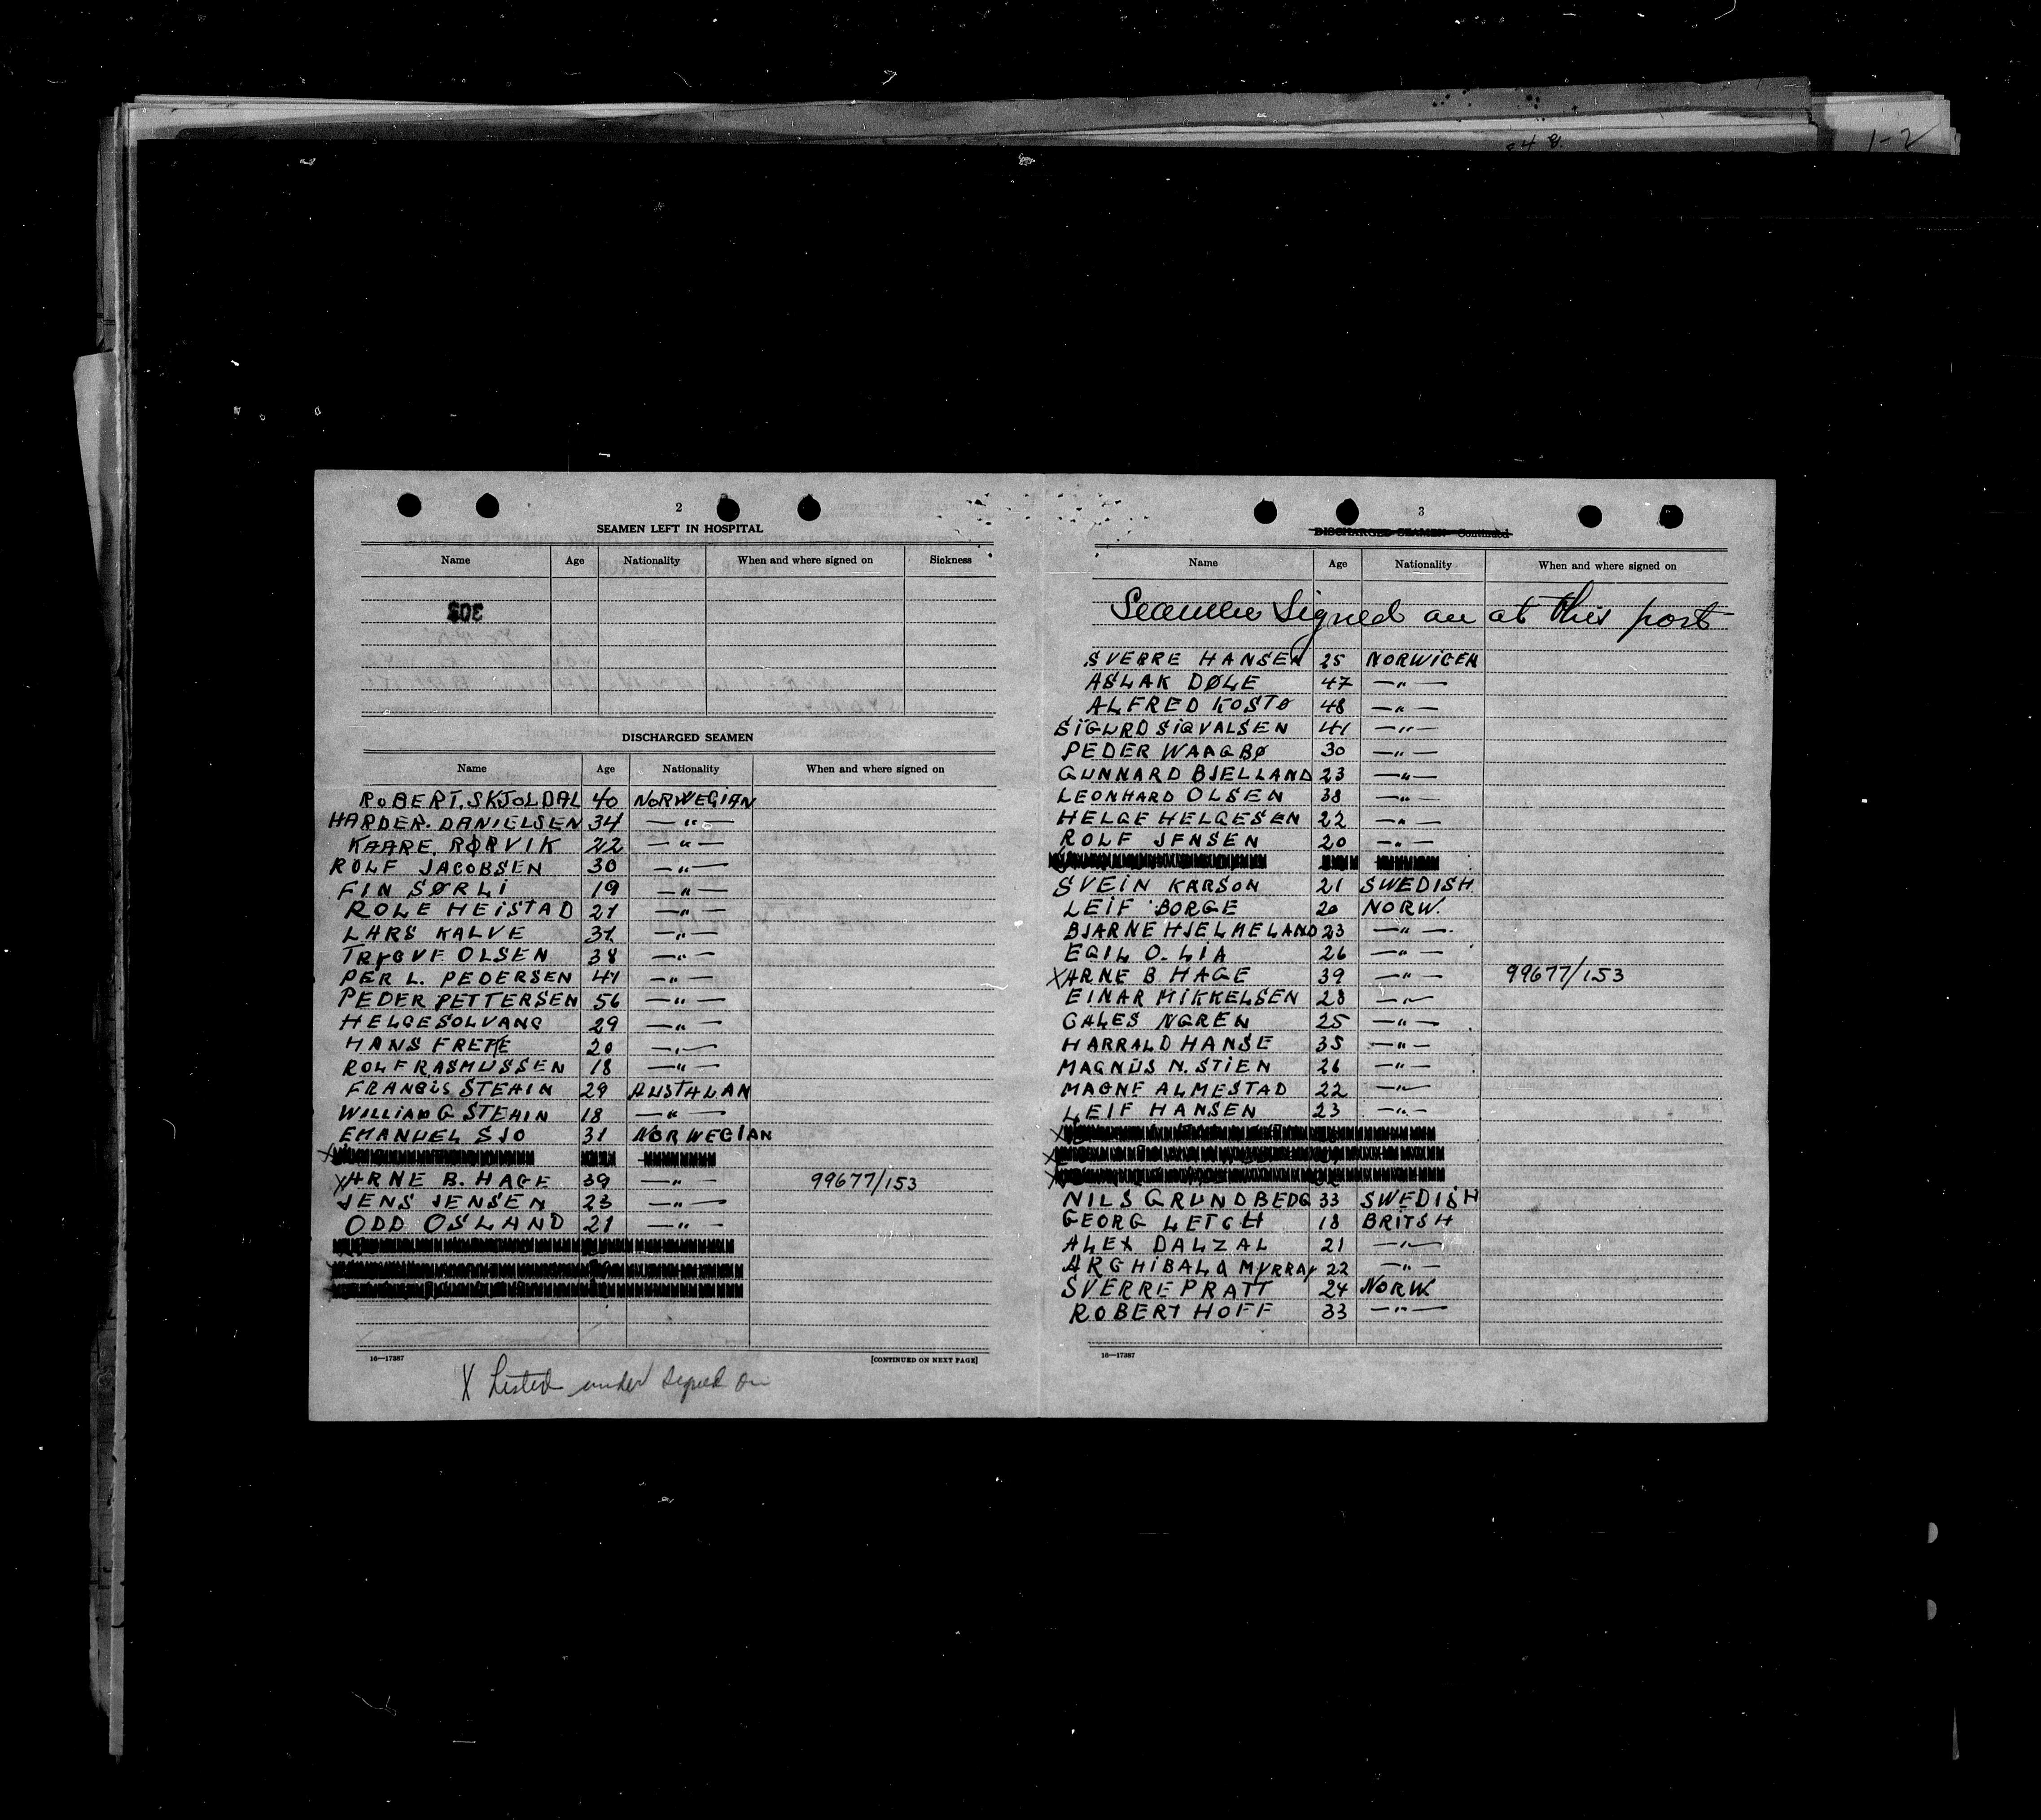 248.
1-2
2
SEAMEN LEFT IN HOSPITAL
Name Age Nationality When and where signed on Sickness
303
DISCHARGED SEAMEN
Name Age Nationality When and where signed on
ROBERT. SKJOLDAL 40 NORWEGIAN
HARDER. DANIELSEN 34 —"—
KAARE. RØRVIK 22 —"—
ROLF JACOBSEN 30 —"—
FIN SØRLI 19 —"—
ROLF HEISTAD 21 —"—
LARS KALVE 31 —"—
TRYGVE OLSEN 38 —"—
PER L. PEDERSEN 41 —"—
PEDER PETTERSEN 56 —"—
HELGE SOLVANG 29 —"—
HANS FRETTE 20 —"—
ROLF RASMUSSEN 18 —"—
FRANCIS STEHIN 29 AUSTALAN
WILLIAM G STEHIN 18 —"—
EMANUEL SJO 31 NORWEGIAN
X
X ARNE B. HAGE 39 —"— 99677/153
JENS JENSEN 23 —"—
ODD OSLAND 21 —"—
16—17387 [CONTINUED ON NEXT PAGE]
X Listed under signed on
3
DISCHARGED SEAMEN—Continued
Name Age Nationality When and where signed on
Seamen Signed on at this port
SVERRE HANSEN 25 NORWIGEN
ASLAK DØLE 47 —"—
ALFRED KOSTØ 48 —"—
SIGURD SIGVALSEN 41 —"—
PEDER WAAGBØ 30 —"—
GUNNARD BJELLAND 23 —"—
LEONHARD OLSEN 38 —"—
HELGE HELGESEN 22 —"—
ROLF JENSEN 20 —"—
SVEIN KARSON 21 SWEDISH
LEIF BORGE 20 NORW.
BJARNE HJELMELAND 23 —"—
EGIL O. LIA 26 —"—
X ARNE B HAGE 39 —"— 99677/153
EINAR MIKKELSEN 28 —"—
GALES NGREN 25 —"—
HARRALD HANSE 35 —"—
MAGNUS N. STIEN 26 —"—
MAGNE ALMESTAD 22 —"—
LEIF HANSEN 23 —"—
X
X
X
NILS GRUNDBEDG 33 SWEDISH
GEORG LETCH 18 BRITSH
ALEX DALZAL 21 —"—
ARGHIBALD MYRRAY 22 —"—
SVERRE PRATT 24 NORW.
ROBERT HOFF 33 —"—
16—17387